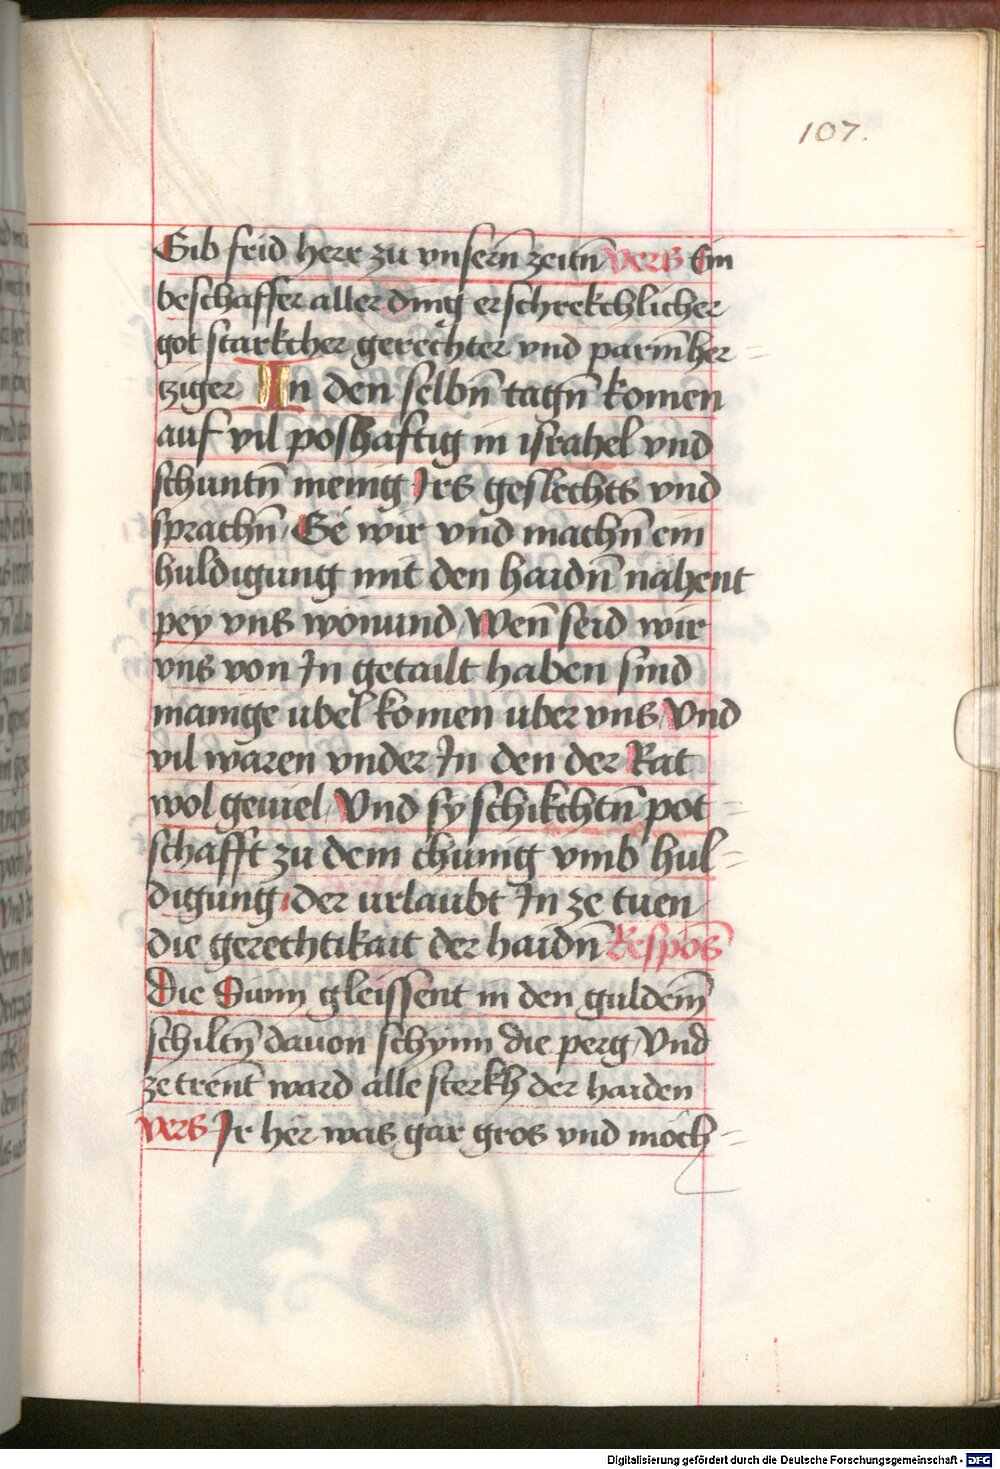 107.
Gib frid herr zu vnsern̄ zeitn̄ vers Ein
beschaffer aller ding erschrekchlicher
got starkcher gerechter vnd parm̄her=
tziger In den selbn̄ tagn̄ komen
auf vil poshaftig in israhel vnd
schuntn̄ menig Irs geslechts vnd
sprachn̄ Ge wir vnd machn̄ ein
huldigung mit den haidn̄ nahent
pey vns wonund Wen̄ seid wir
vns von In getailt haben sind
manige ubel komen uber vns Vnd
vil waren vnder In den der Rat
wol geuiel Vnd sy schikchtn̄ pot=
schafft zu dem chunig vmb hul=
digung der urlaubt In ze tuen
die gerechtikait der haidn̄ Respons
Die Sunn gleissent in den guldein̄
schiltn̄ dauon schynn die perg Vnd
zetrent ward alle sterkh der haiden
vers Ir her was gar gros vnd moch=
Digitalisierung gefördert durch die Deutsche Forschungsgemeinschaft - DFG